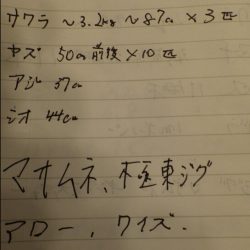 サワラ ～3.2kg ～87cm × 3匹
ヤズ 50cm前後×10匹
アジ 37cm
シオ 44cm
マサムネ、極東ジグ
アロー、ワイズ.